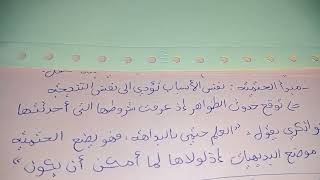 مبدأ الحتمية: نفس الأسباب تؤدي الى نفس النتيجة
توقع حدوث الظواهر إذ عرفت شروطها التي أحدثتها
يقول: "العلم حتمي بالبداهة، فهو يضع الحتمية
موضع البديهيات إذ لولاها لما أمكن أن يكون"